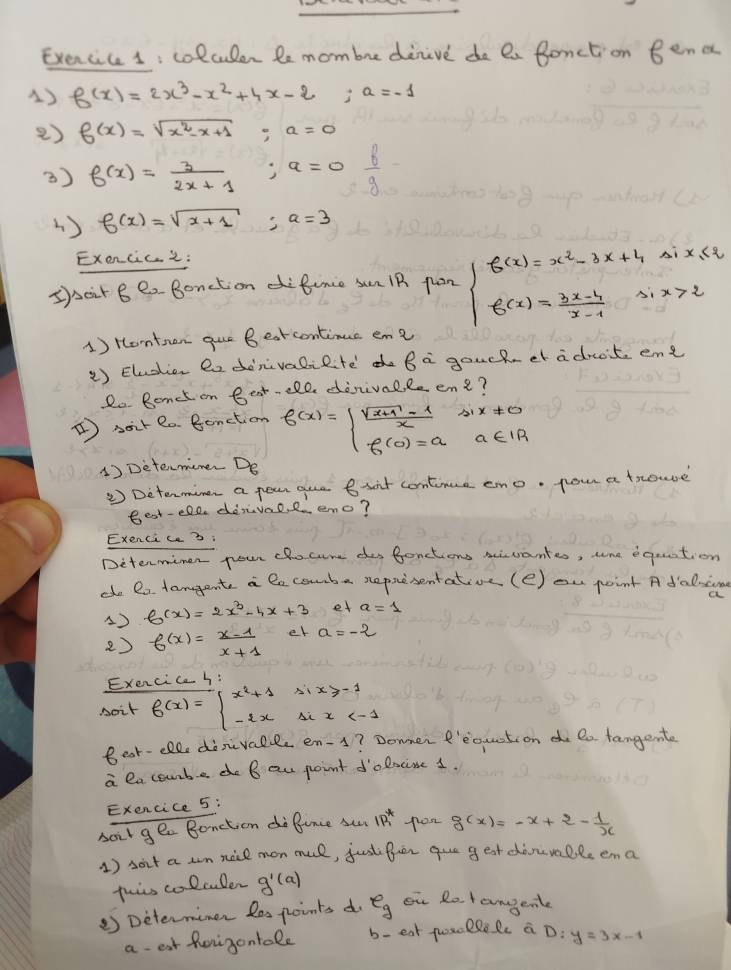 Exercice 1 : calculer le nombre dérivé de la fonction f en a
1) f(x) = 2x³ - x² + 4x - 2 ; a = -1
2) f(x) = √(x²x+1) ; a = 0
3) f(x) = 3/(2x+1) ; a = 0 f/g
4) f(x) = √(x+1) ; a = 3
Exercice 2 :
I) soit f la fonction définie sur IR par { f(x) = x² - 3x + 4 si x ≤ 2
f(x) = (3x-4)/(x-1) si x > 2
1) Montrer que f est continue en 2
2) Etudier la dérivabilité de f à gauche et à droite en 2
la fonction f est-elle dérivable en 2 ?
II) soit la fonction f(x) = { (√(x+1) - 1)/x si x ≠ 0
f(0) = a a ∈ IR
1) Déterminer Df
2) Déterminer a pour que f soit continue en 0 . pour a trouvé
f est-elle dérivable en 0 ?
Exercice 3 :
Déterminer pour chacune des fonctions suivantes, une équation
de la tangente à la courbe représentative (C) au point A d'abscisse
a
1) f(x) = 2x³ - 4x + 3 et a = 1
2) f(x) = (x-1)/(x+1) et a = -2
Exercice 4 :
soit f(x) = { x² + 1 si x ≥ -1
-2x si x < -1
f est-elle dérivable en -1 ? Donner l'équation de la tangente
à la courbe de f au point d'abscisse 1 .
Exercice 5 :
soit g la fonction définie sur IR* par g(x) = -x + 2 - 1/x
1) soit a un réel non nul, justifier que g est dérivable en a
puis calculer g'(a)
2) Déterminer les points de Cg où la tangente
a - est horizontale b - est parallèle à D : y = 3x - 1